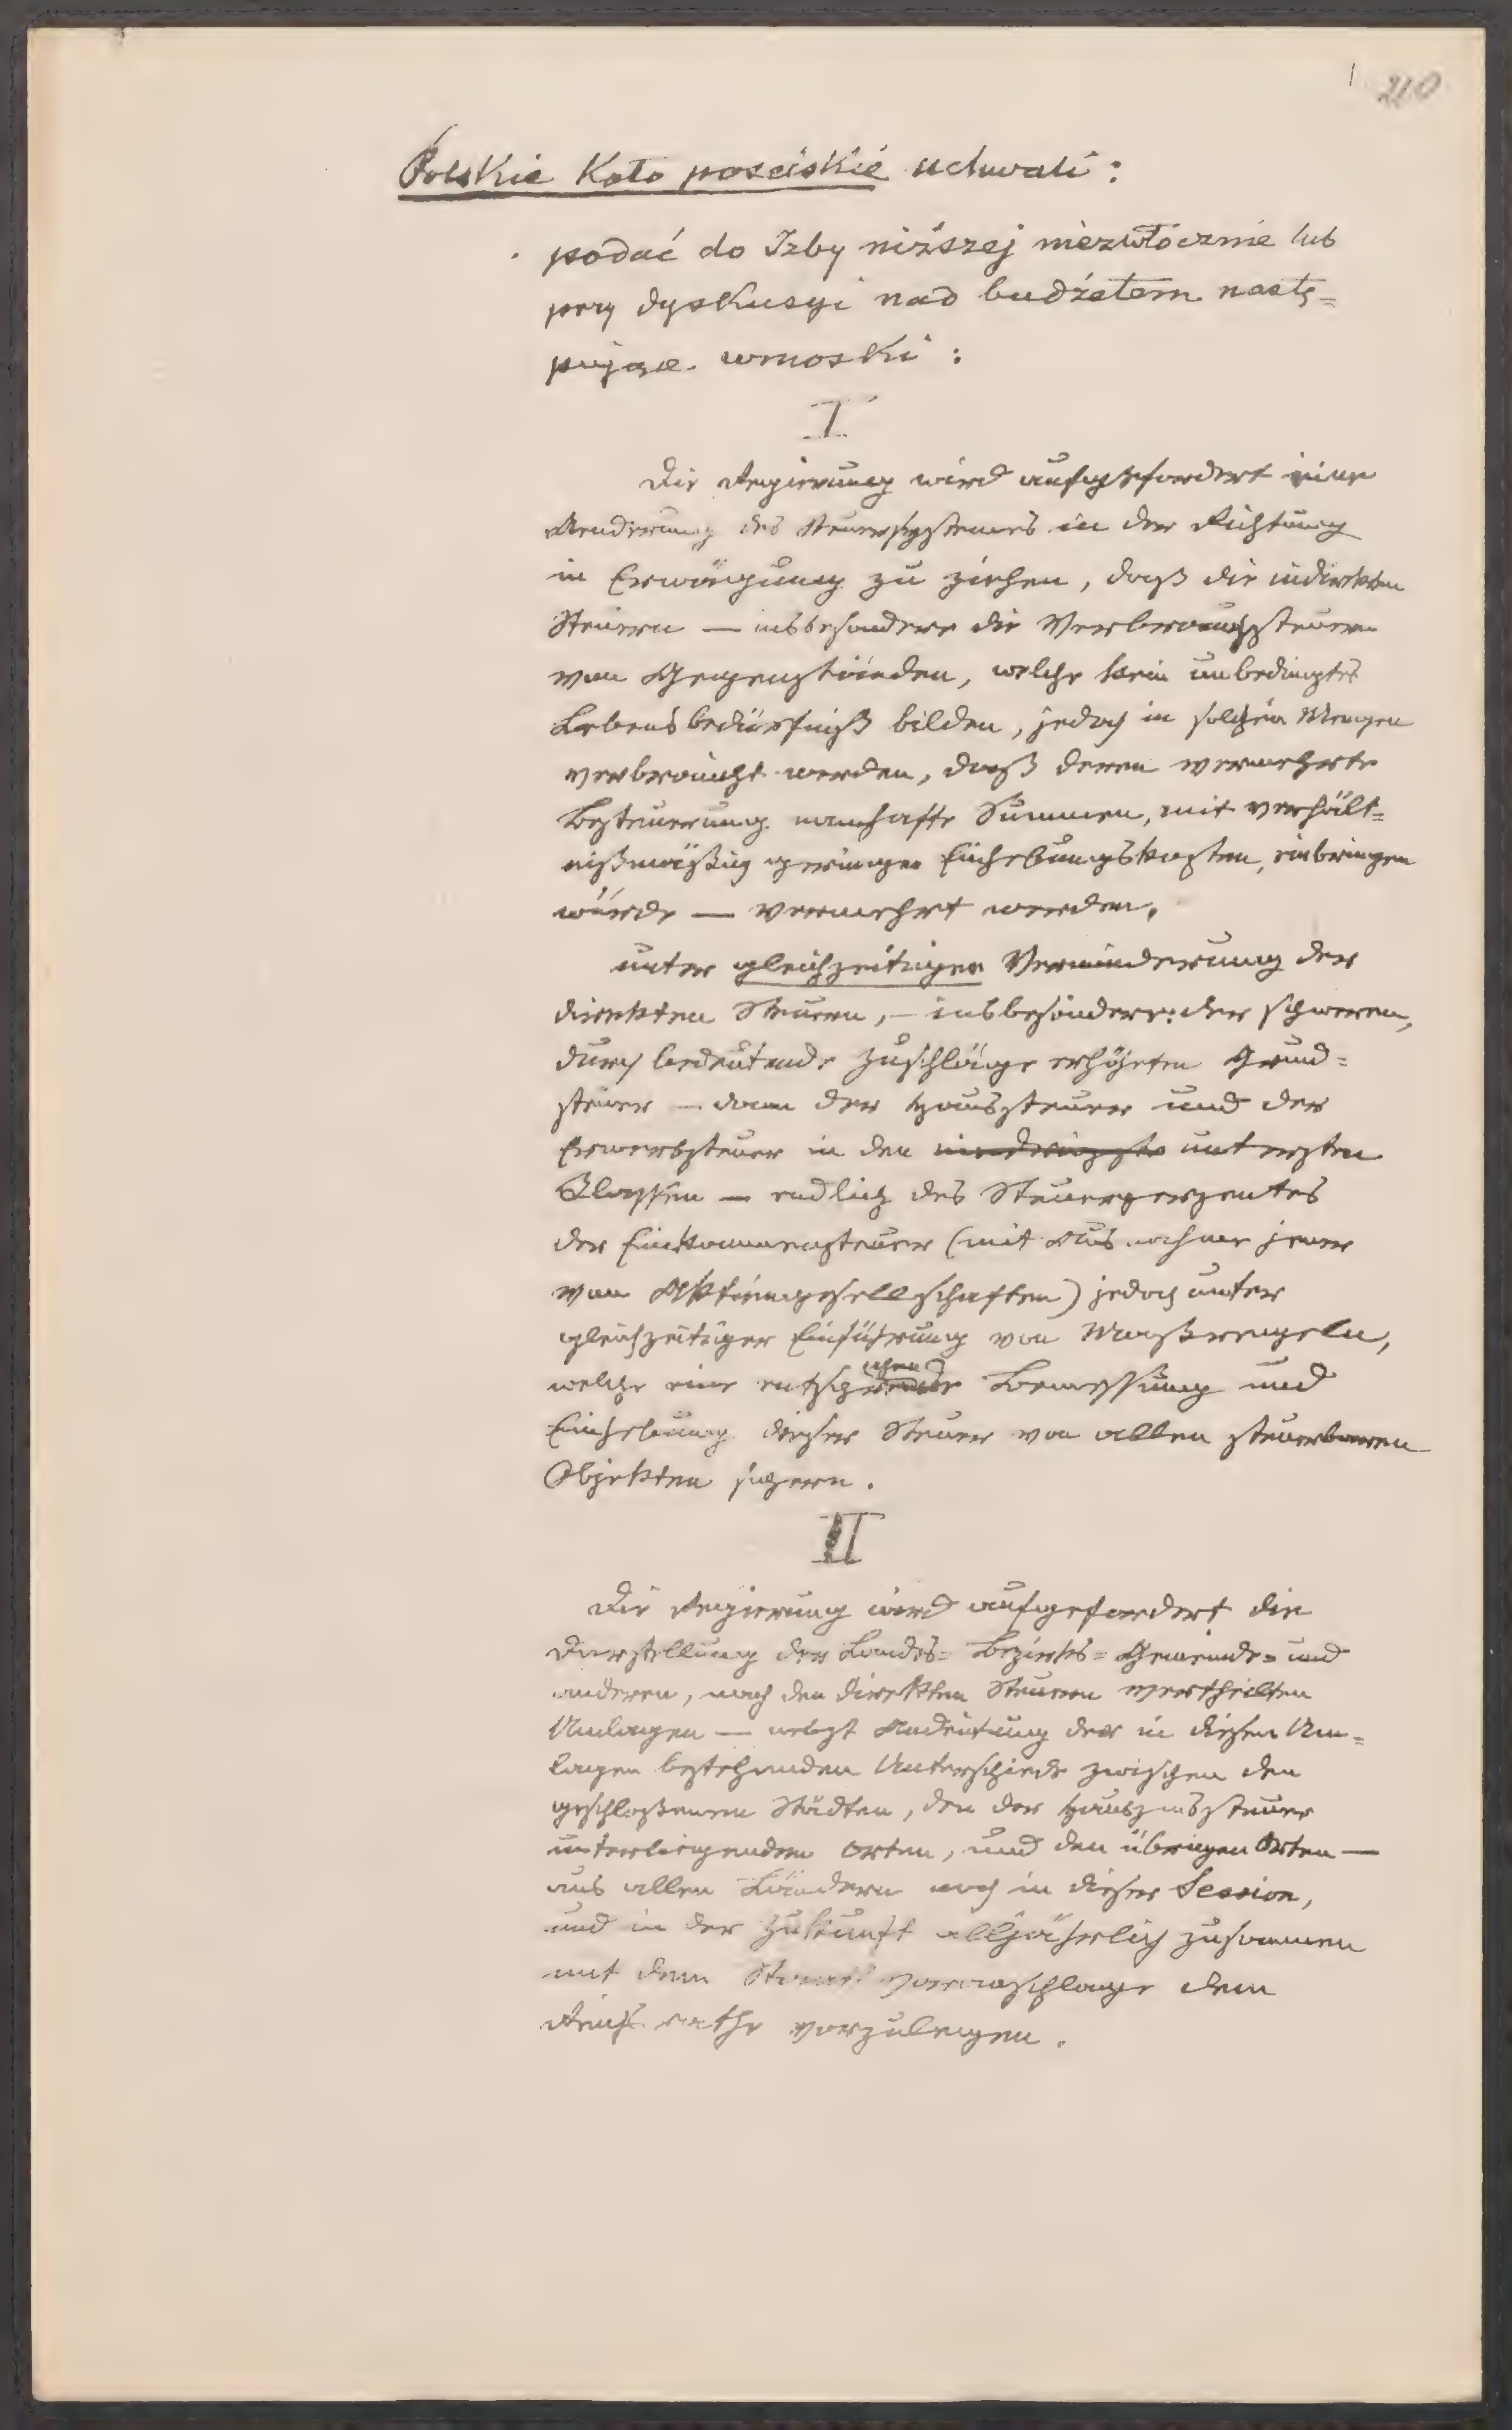 210
Polskie Koło poselskie uchwali:
podać do Izby niższej niezwłocznie lub
przy dyskusyi nad budżetem nastę=
pujące wnioski:
I
Die Regierung wird aufgefordert eine
Aenderung des Steuersystemes in der Richtung
in Erwägung zu ziehen, daß die indirekten
Steuern — insbesondere die Verbrauchssteuern
von Gegenständen, welche kein unbedingtes
Lebensbedürfniß bilden, jedoch in solchen Mengen
verbraucht werden, daß deren vermehrte
Besteuerung namhafte Summen, mit verhält=
nißmäßig geringen Einhebungskosten, einbringen
würde — vermehrt werden,
unter gleichzeitiger Verminderung der
direkten Steuern, — insbesondere: der schweren,
durch bedeutende Zuschläge erhöhten Grund=
steuer — dann der Haussteuer und der
Erwerbsteuer in den niedrigste untersten
Klassen — endlich des Steuerperzentes
der Einkommensteuer (mit Ausnahme jener
von Aktiengesellschaften) jedoch unter
gleichzeitiger Einführung von Maßregeln,
welche eine Bemessung und
Einhebung dieser Steuer von allen steuerbaren
Objekten sichern.
II
Die Regierung wird aufgefordert die
Darstellung der Landes= Bezirks= Gemeinde= und
anderen, nach den direkten Steuern vertheilten
Umlagen — nebst Andeutung der in diesen Um=
lagen bestehenden Unterschiede zwischen den
geschloßenen Städten, den der Hauszinssteuer
unterliegenden Orten, und den übrigen Orten —
aus allen Ländern noch in dieser Session,
und in der Zukunft alljährlich zusammen
mit dem Staatsvoranschlage dem
Reichsrathe vorzulegen.